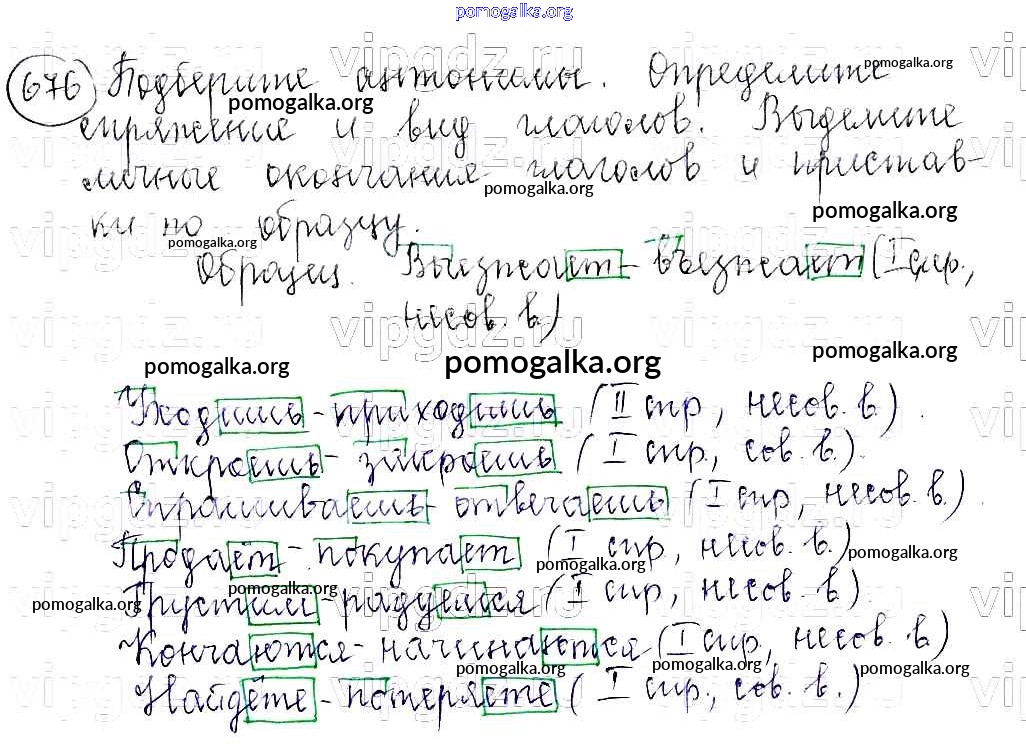 pomogalka.org
676 Подберите антонимы. Определите
спряжение и вид глаголов. Выделите
личные окончания глаголов и пристав-
ки по образцу.
Образец. Выезжает - въезжает (I спр,
несов. в.)
Уходишь - приходишь (II спр, несов. в.).
Откроешь - закроешь (I спр, сов. в.).
Спрашиваешь - отвечаешь (I спр, несов. в.).
Продаёт - покупает (I спр, несов. в.)
Грустим - радуемся (I спр, несов. в.)
Кончаются - начинаются (I спр, несов. в.)
Найдёте - потеряете (I спр., сов. в.)